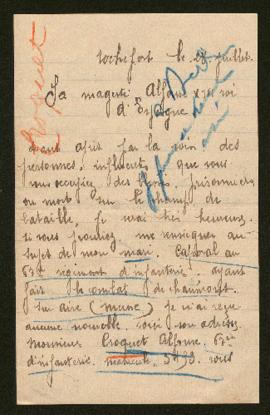 Croquet
rochefort le 28 juillet.
Sa magesté Alfonse XIII roi
d'Espagne
ayant apris par la voix des
personnes influentes que vous
vous occupiez des prisonniers
ou morts sur le champ de
bataille. Je serai très heureuse
si vous pouviez me renseigner au
sujet de mon mari. Caporal au
63me regiment d'infanterie. ayant
fait le combat de chauvoncourt
sur aire (meuse) je n'ai reçue
aucune nouvelle. voici son adresse
Monsieur Croquet Alfonse. 63me
d'infanterie. matricule 5499. voici